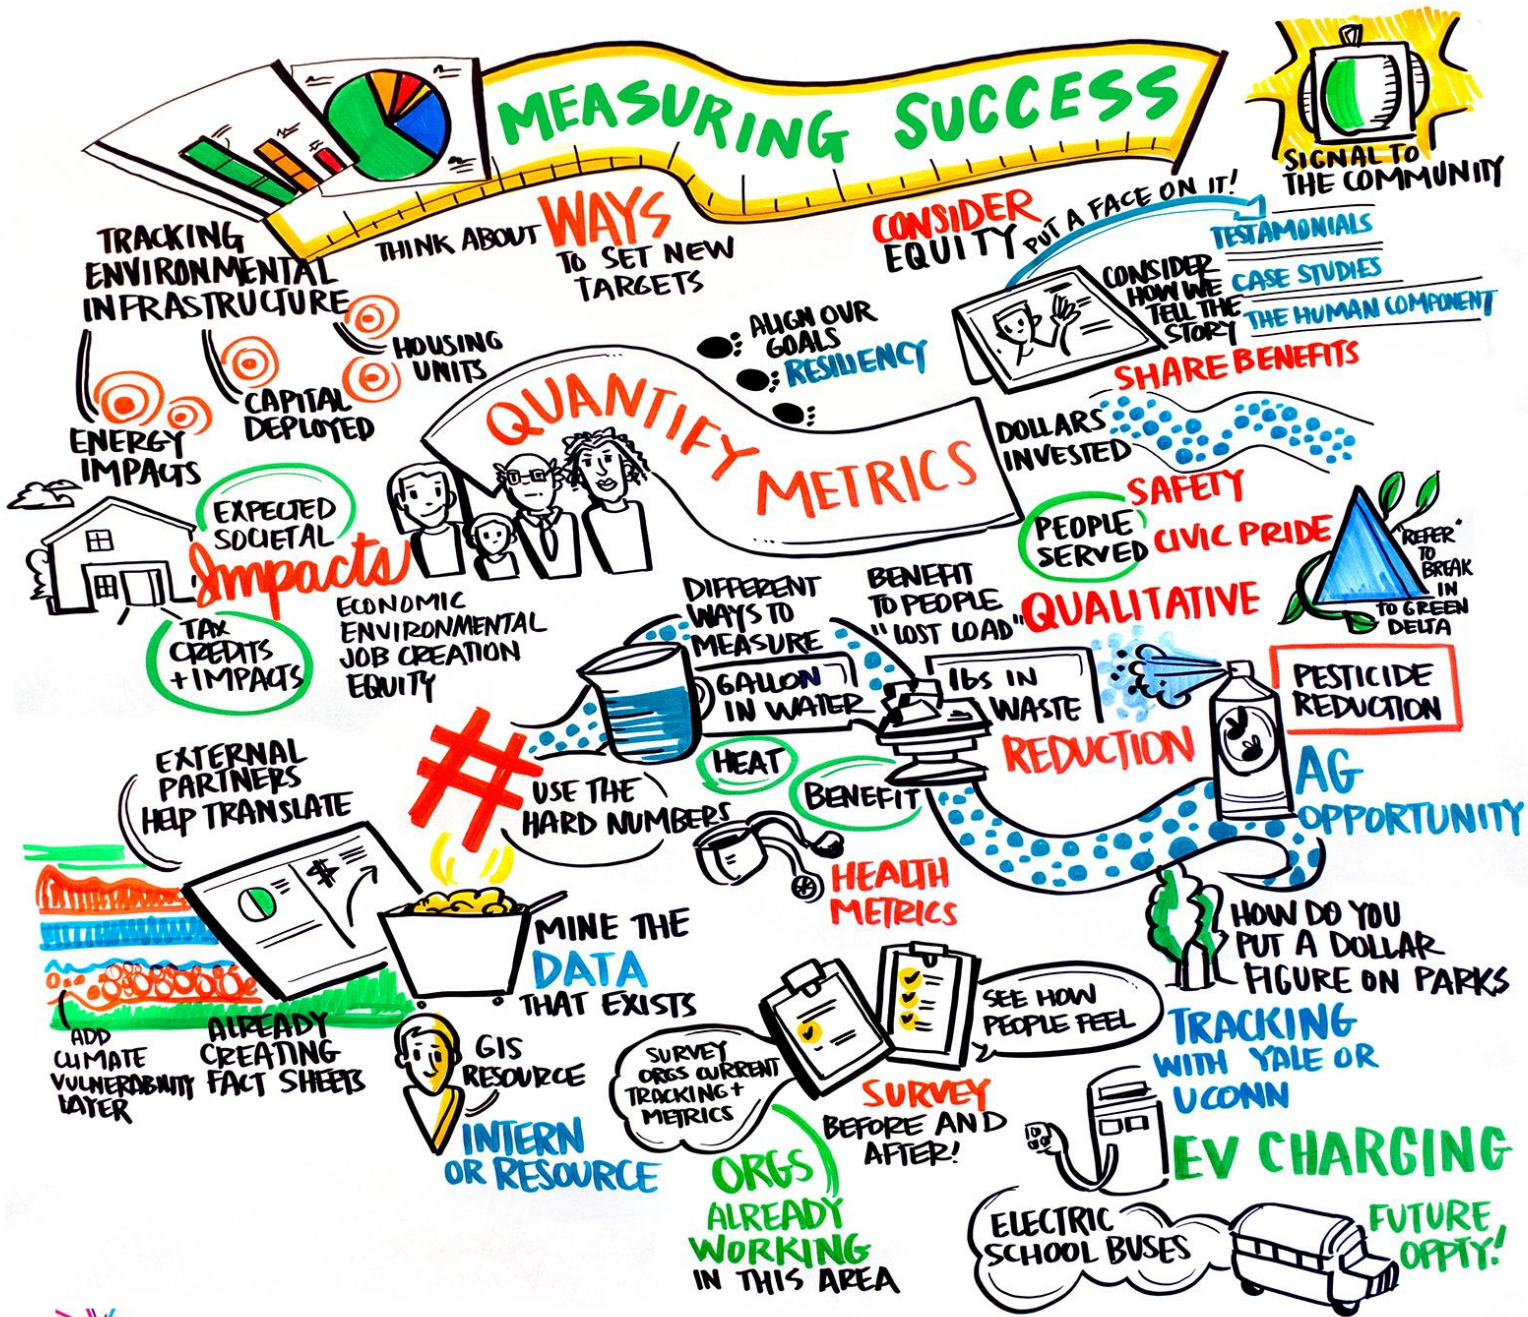 MEASURING SUCCESS
SIGNAL TO
THE COMMUNITY
TRACKING
ENVIRONMENTAL
INFRASTRUCTURE
ENERGY
IMPACTS
CAPITAL
DEPLOYED
HOUSING
UNITS
THINK ABOUT WAYS
TO SET NEW
TARGETS
CONSIDER
EQUITY
PUT A FACE ON IT!
CONSIDER
HOW WE
TELL THE
STORY
TESTAMONIALS
CASE STUDIES
THE HUMAN COMPONENT
SHARE BENEFITS
ALIGN OUR
GOALS
RESILIENCY
QUANTIFY METRICS
DOLLARS
INVESTED
PEOPLE
SERVED
SAFETY
CIVIC PRIDE
QUALITATIVE
"REFER"
TO
BREAK
IN
TO GREEN
DELTA
EXPECTED
SOCIETAL
Impacts
TAX
CREDITS
+ IMPACTS
ECONOMIC
ENVIRONMENTAL
JOB CREATION
EQUITY
DIFFERENT
WAYS TO
MEASURE
BENEFIT
TO PEOPLE
"LOST LOAD"
GALLON
IN WATER
lbs IN
WASTE
REDUCTION
PESTICIDE
REDUCTION
AG
OPPORTUNITY
HEAT
BENEFIT
HEALTH
METRICS
#
USE THE
HARD NUMBERS
EXTERNAL
PARTNERS
HELP TRANSLATE
$
MINE THE
DATA
THAT EXISTS
ADD
CLIMATE
VULNERABILITY
LAYER
ALREADY
CREATING
FACT SHEETS
GIS
RESOURCE
INTERN
OR RESOURCE
SURVEY
ORGS CURRENT
TRACKING +
METRICS
SEE HOW
PEOPLE FEEL
SURVEY
BEFORE AND
AFTER!
ORGS
ALREADY
WORKING
IN THIS AREA
HOW DO YOU
PUT A DOLLAR
FIGURE ON PARKS
TRACKING
WITH YALE OR
UCONN
EV CHARGING
ELECTRIC
SCHOOL BUSES
FUTURE
OPPTY!